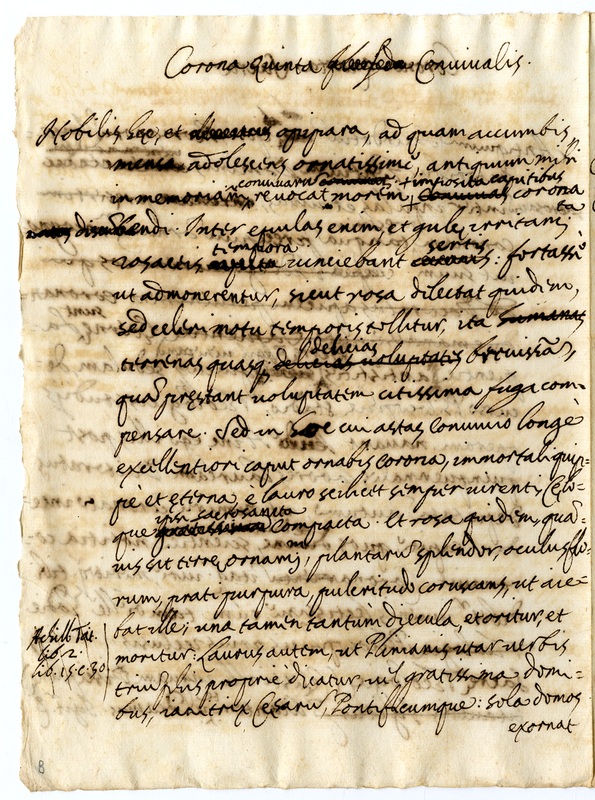 Corona Quinta Convivalis.
Nobilis hęc, et opipara, ad quam accumbis
mensa adolescens ornatissimè, antiquum mihi
conviviarū + impositâ capitibus
in memoriam revocat morem, convivas corona
ta
discumbendi. Inter epulas enim, et gulę irritam;
tempora sertis
rosaceis vinciebant : fortassè
ut admonerentur, sicut rosa delectat quidem,
sed celeri motu temporis tollitur, ita humanas
sunt
terrenas quasq; delicias voluptatis brevissia,
delicias
quā pręstant voluptatem citissima fuga com-
pensare. Sed in hoc cui astas convivio longè
excellentiori caput ornabis corona, immortali quip-
pe et eterna, e lauro scilicet semper virenti, Cęlo-
ipsi sacrosancta
que compacta. Et rosa quidem, quā-
vis sit terrę ornamē, plantarū splendor, oculus flo-
rum, prati purpura, pulcritudo coruscans, ut aie-
bat ille; una tamen tantùm diecula, et oritur, et
moritur: Laurus autem, ut Plinianis utar verbis
triumphis propriè dicatur, vel gratissima domi-
bus, ianitrix Cęsarū, Pontificumque: sola domos
exornat
Achill. Tat.
lib. 2.
lib. 15. c. 30
8